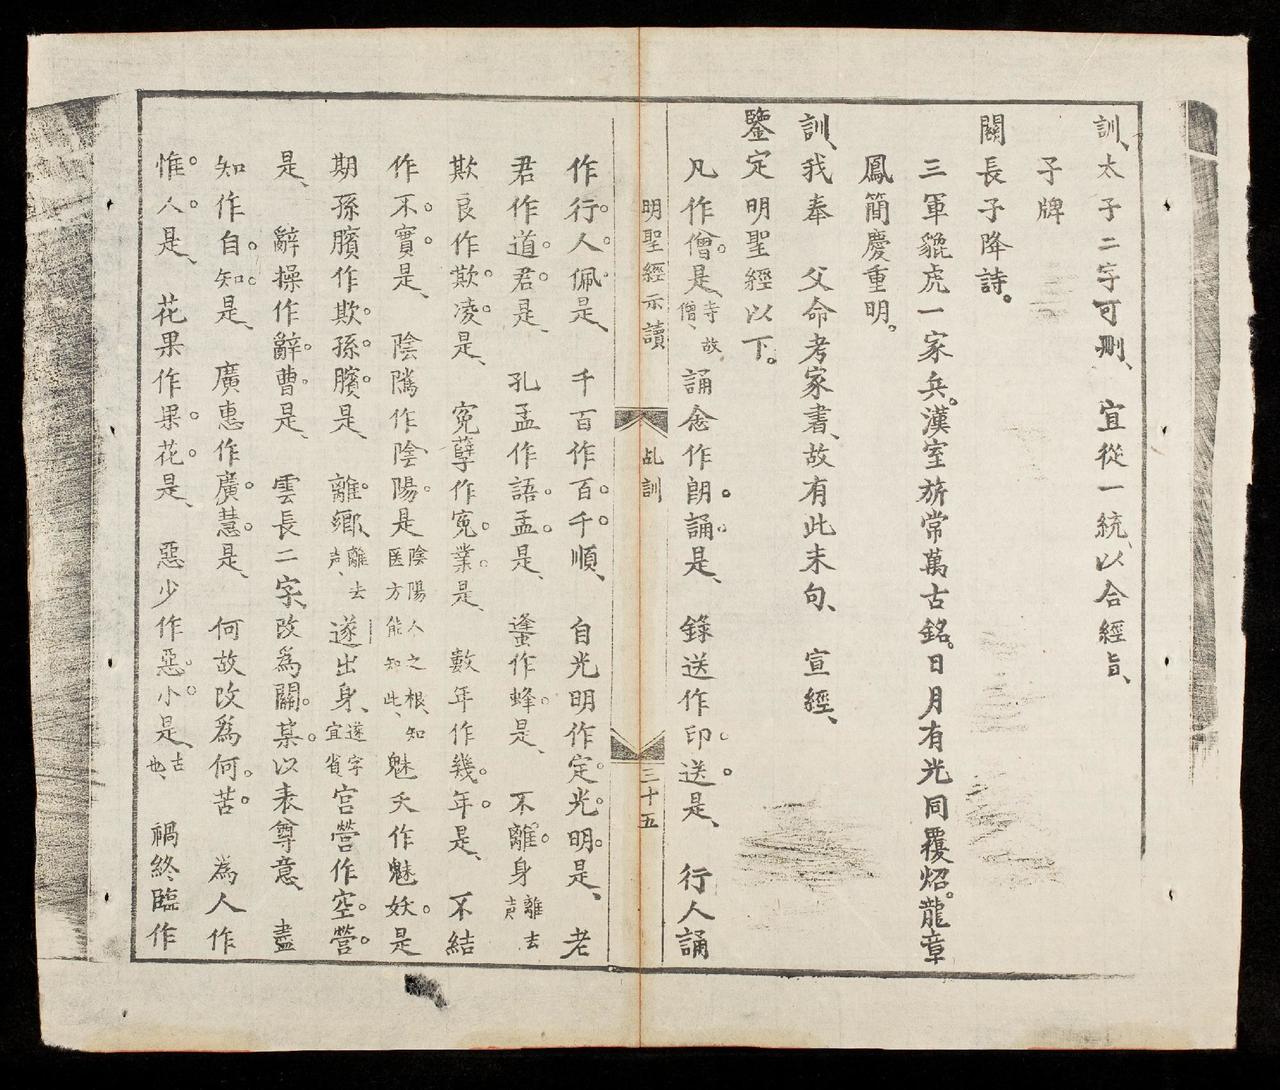 訓、太子二字可刪、宜從一統、以合經旨、
子牌
關長子降詩。
三軍貔虎一家兵。漢室旂常萬古銘。日月有光同覆炤。龍章
鳳簡慶重明。
訓、我奉 父命考家書、故有此末句、 宣經、
鑒定明聖經以下。
凡作僧。是、寺故僧、 誦念作朗。誦。是、 錄送作印。送。是、 行人誦
明聖經示讀 乩訓 三十五
作行。人。佩是、 千百作百。千。順、 自光明作定。光。明。是、 老
君作道。君。是、 孔孟作語。孟。是、 蓬作蜂。是、 不離。身離去声
欺良作欺。凌。是、 冤孽作冤。業。是、 數年作幾。年。是、 不結
作不。實。是、 陰隲作陰。陽。是陰陽人之根、知医方能知此、 魅夭作魅妖。是
期孫臏作欺。孫。臏。是 離。鄉、離去声、 遂出身、遂字宜省 宮營作空。營。
是、 辭操作辭。曹。是、 雲長二字、改為關。某。以表尊意、 盡
知作自。知。是、 廣惠作廣。慧。是、 何故改為何。苦。 為人作
惟。人。是、 花果作果。花。是、 惡少作惡。小。是、古也、 禍終臨作